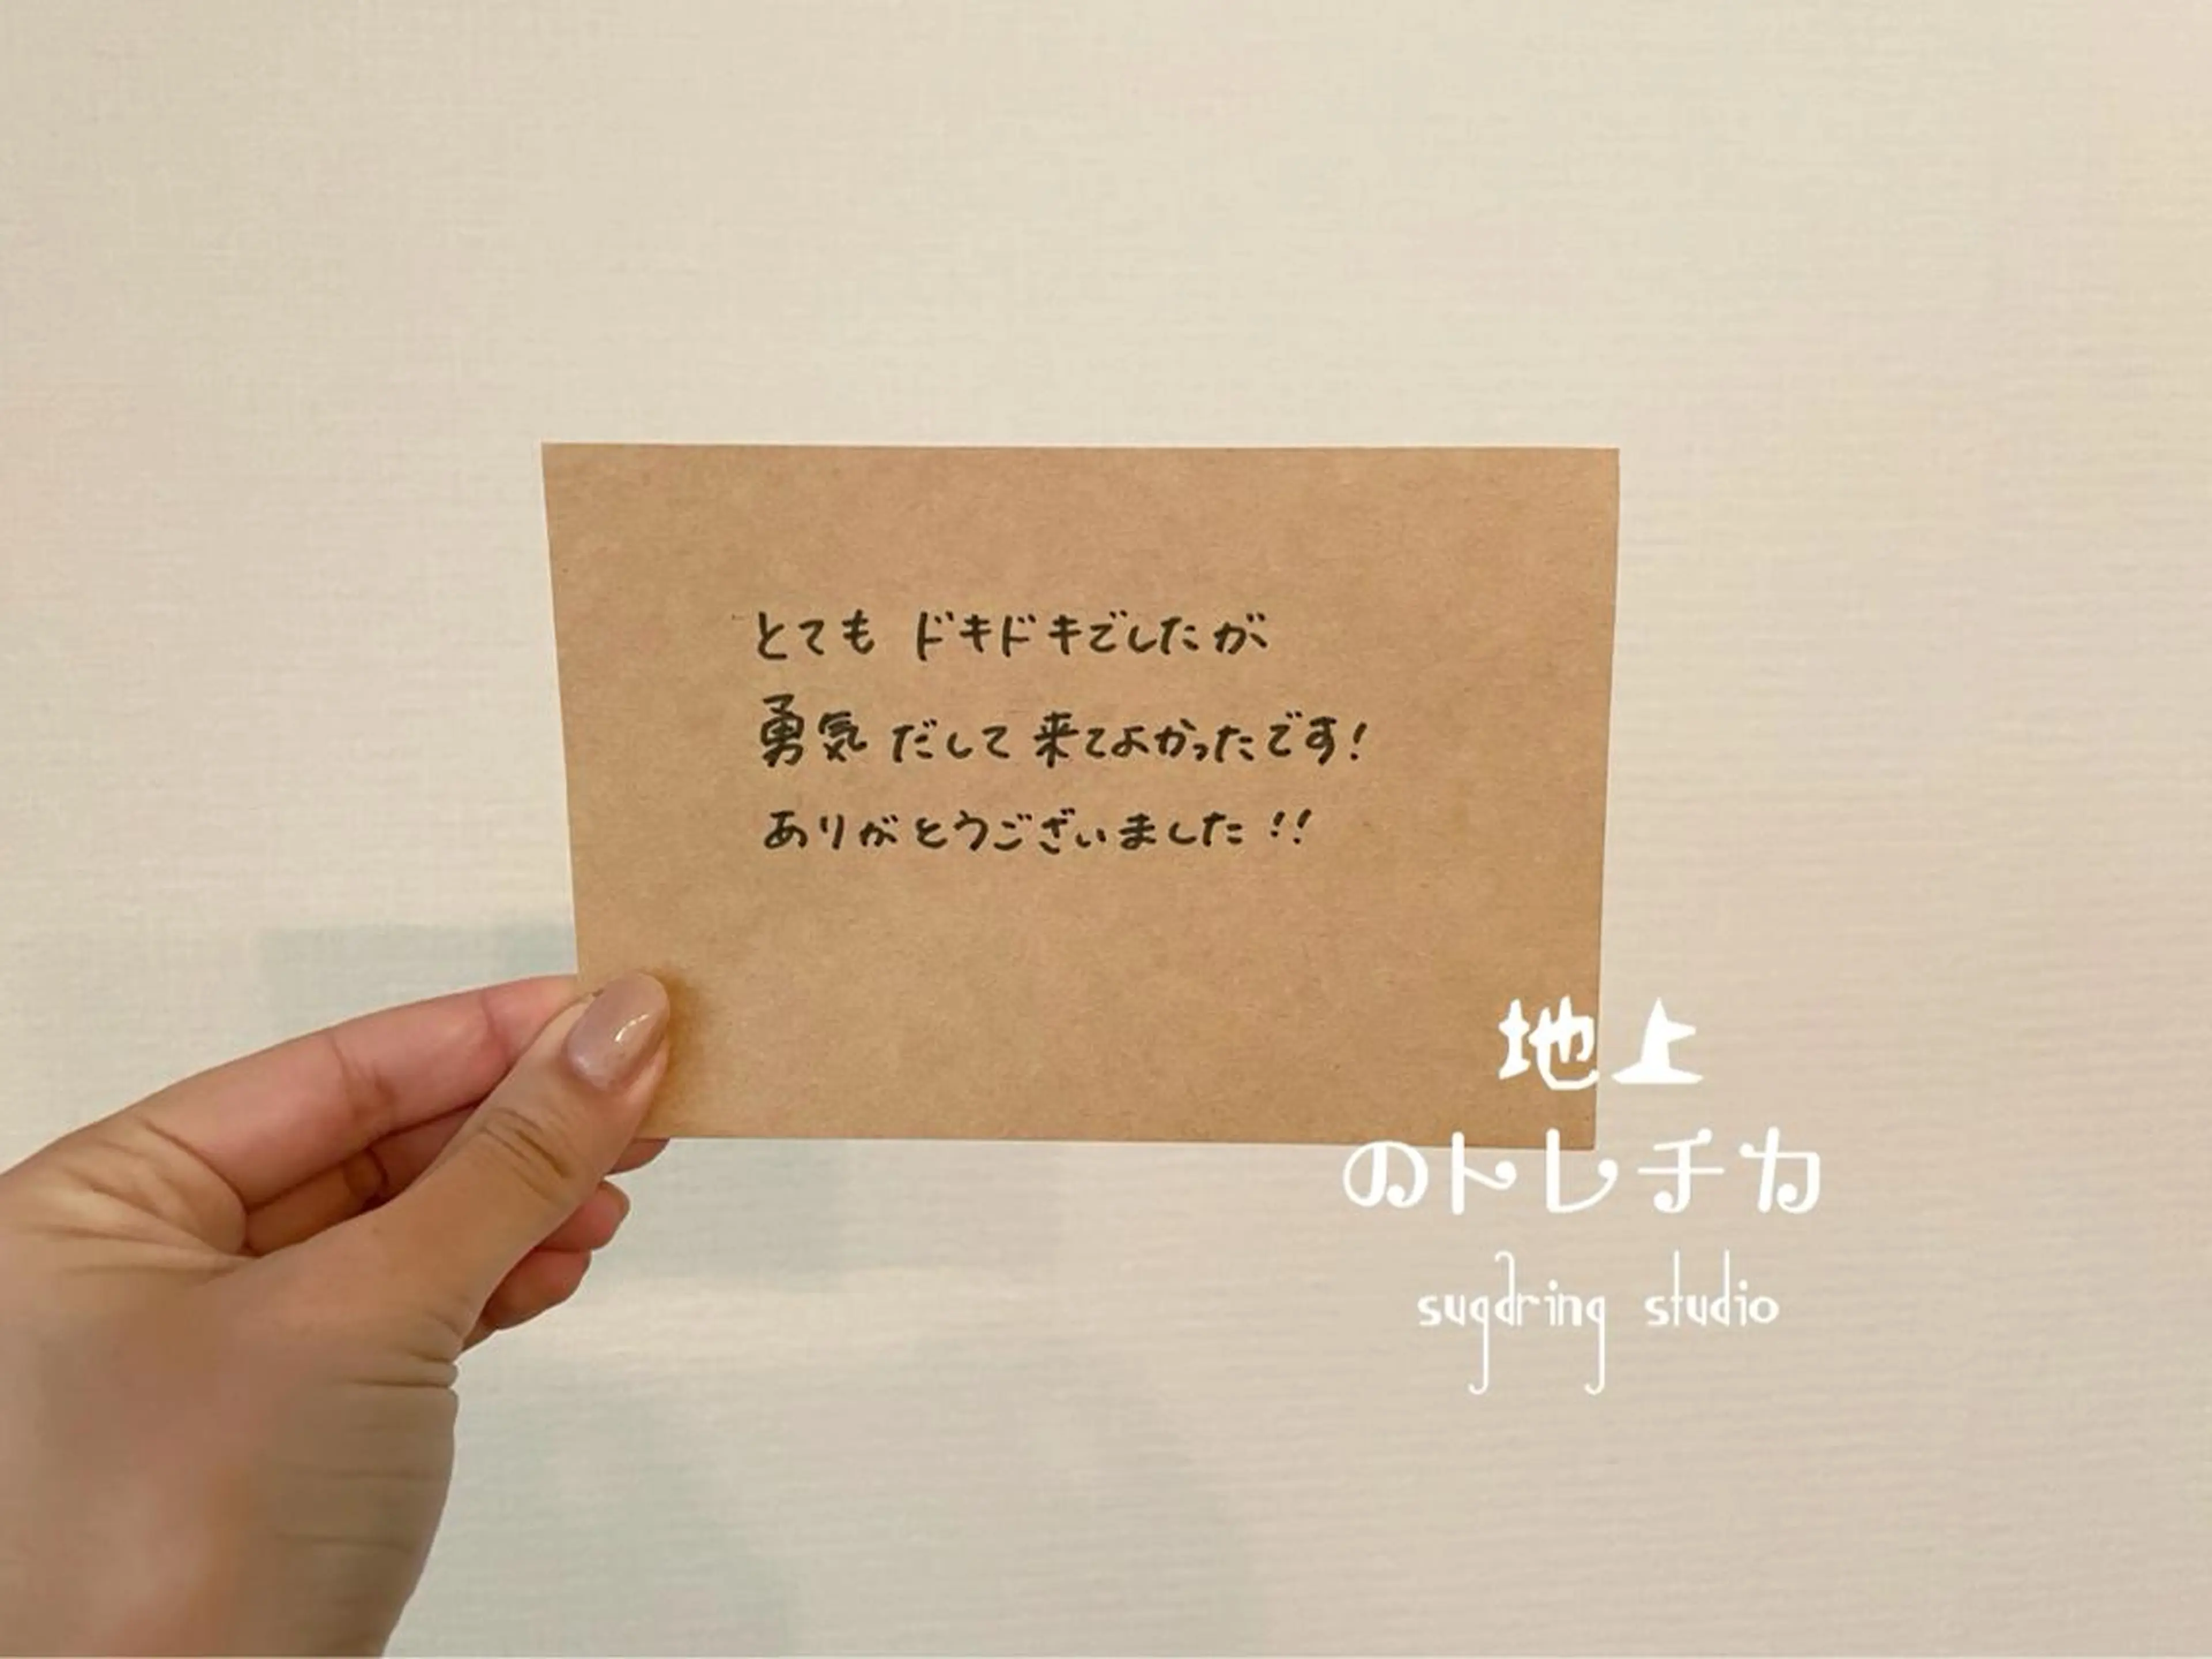 とても ドキドキでしたが
勇気 だして 来てよかったです!
ありがとうございました!!
地上
のトレチカ
sugdring studio